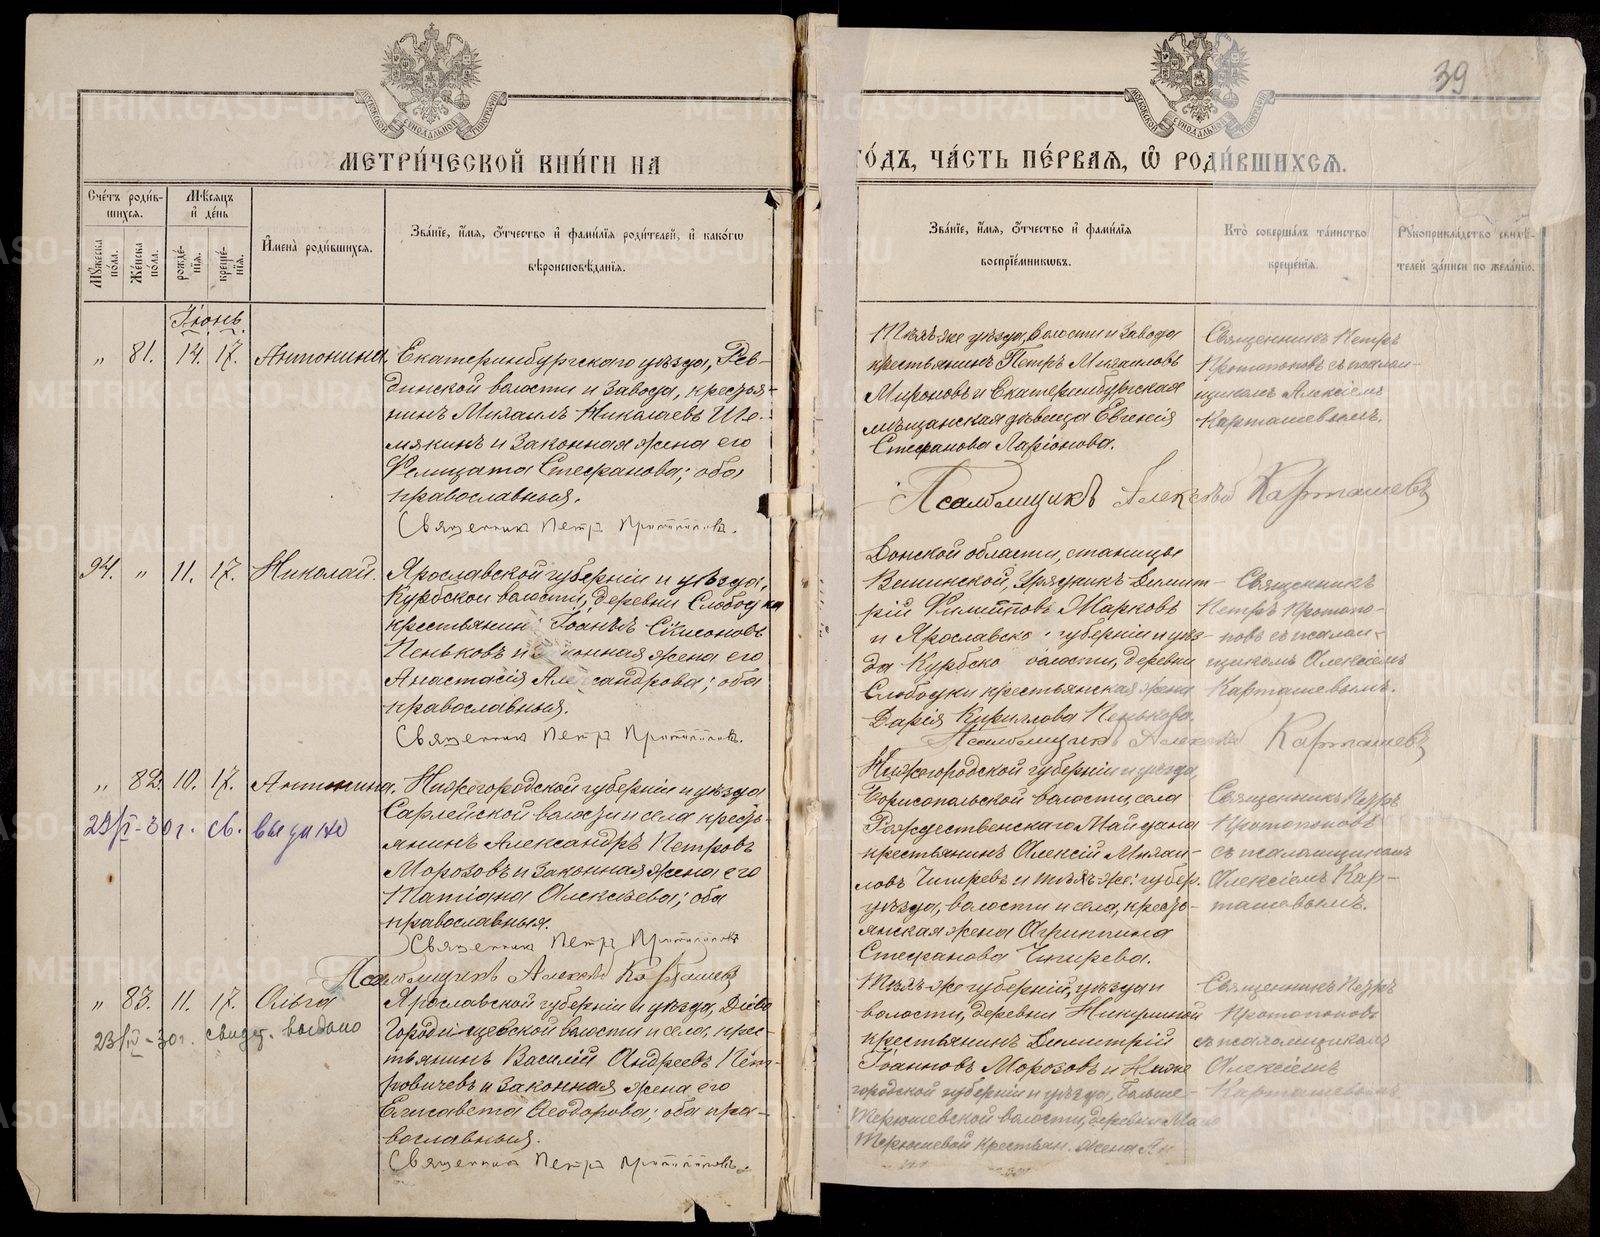 39
МЕТРИ́ЧЕСКОЙ КНИ́ГИ НА
ГО́ДЪ, ЧА́СТЬ ПЕ́РВАѦ, Ѡ҆ РОДИ́ВШИХСѦ.
Сче́тъ роди́в-
шихся.
Мѣ́сяцъ
и҆ де́нь
Му́жеска по́ла.
Же́нска по́ла.
рожде́-
нїя.
креще́-
нїя.
И҆мена̀ роди́вшихся.
Зва́нїе, и҆́мя, ѻ҆́тчество и҆ фами́лїя роди́телей, и҆ како́гѡ
вѣроисповѣ́данїя.
Зва́нїе, и҆́мя, ѻ҆́тчество и҆ фами́лїя
воспрїе́мникѡвъ.
Кто̀ соверша́лъ та́инство
креще́нїя.
Рꙋкоприкла́дство свидѣ́-
телей за́писи по жела́нїю.
Іюнь.
„ 81. 14. 17. Антонина
Екатеринбургскаго уѣзда, Рев-
динской волости и завода, крестья-
нинъ Михаилъ Николаевъ Ше-
мякинъ и законная жена его
Фелицата Стефанова; оба
православныя.
Священник Петр Протопоповъ.
Тѣхъ-же уѣзда, волости и завода
крестьянинъ Петръ Михаиловъ
Мироновъ и Екатеринбургская
мѣщанская дѣвица Евгенія
Стефанова Ларіонова.
Священникъ Петръ
Протопоповъ съ псалом-
щикомъ Алексіемъ
Карташевымъ.
Псаломщикъ Алексѣй Карташевъ
94. „ 11. 17. Николай.
Ярославской губерніи и уѣзда,
Курбской волости, деревни Слободки
крестьянин Іоаннъ Симоновъ
Пеньковъ и законная жена его
Анастасія Александрова; оба
православныя.
Священник Петр Протопоповъ.
Донской области, станицы
Вешинской, урядникъ Димит-
рій Филипповъ Марковъ
и Ярославско губерніи и уѣз-
да Курбско волости, деревни
Слободки крестьянская жена
Дарія Кириллова Пенькова.
Священникъ
Петръ Протопо-
повъ съ псалом-
щикомъ Алексіемъ
Карташевымъ.
Псаломщикъ Алексѣй Карташевъ
„ 82. 10. 17. Антонина.
29/I-30г. св. выдано
Нижегородской губерніи и уѣзда
Сарлейской волости и села кресть-
янинъ Александръ Петровъ
Морозовъ и законная жена его
Татіана Алексѣева; оба
православныя.
Священник Петр Протопоповъ
Псаломщикъ Алексѣй Карташевъ
Нижегородской губерніи и уѣзда,
Борисопольской волости, села
Рождественскаго Майдана
крестьянинъ Алексій Михаи-
ловъ Чигревъ и тѣхъ-же: губер.
уѣзда, волости и села, кресть-
янская жена Агриппина
Стефанова Чигирева.
Священникъ Петръ
Протопоповъ
съ псаломщикомъ
Алексіемъ Кар-
ташевымъ.
„ 83. 11. 17. Ольга
23/IV-30г. свидет. выдано
Ярославской губерніи и уѣзда, Діево
Городищевской волости и села, крес-
тьянинъ Василій Андреевъ Пет-
ровичевъ и законная жена его
Елисавета Ѳеодорова; оба пра-
вославныя.
Священник Петр Протопоповъ.
Тѣхъ-же губерніи, уѣзда и
волости, деревни Никулиной
крестьянинъ Димитрій
Іоанновъ Морозовъ и Ниже
городской губерніи и уѣзда, Больше-
Терюшевской волости, деревни Мало
Терюшевой крестьян. жена Ан
Священникъ Петръ
Протопоповъ
съ псаломщикомъ
Алексіемъ
Карташевымъ.
METRIKI.GASO-URAL.RU